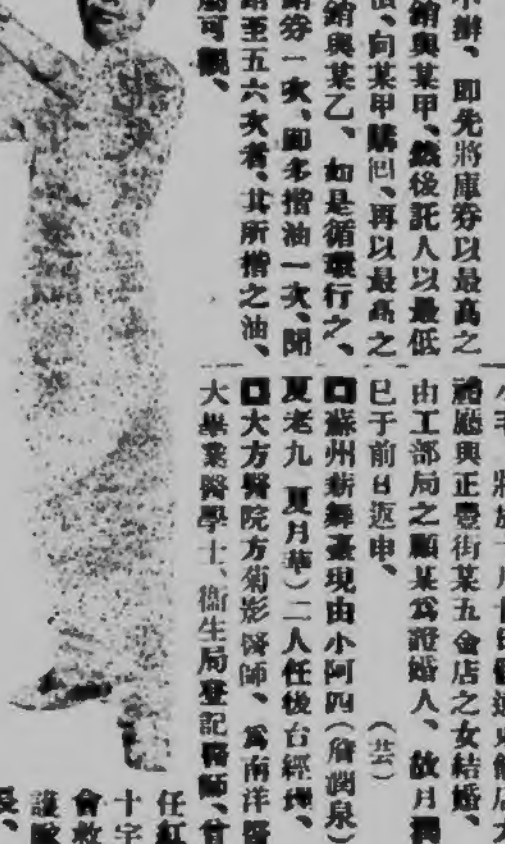 不辦、即先將庫券以最高之
銷與某甲、然後託人以最低
、向某甲購回、再以最高之
銷與某乙、如是循環行之、
券一次、即多揩油一次、聞
至五六次者、其所揩之油、
可觀、
禮廳與正豐街某五金店之女結婚、
由工部局之顧某爲證婚人、故月潤
已于前日返申、(芸)
□蘇州新舞臺現由小阿四(詹潤泉)
夏老九 夏月華)二人任後台經理、
□大方醫院方菊影醫師、爲南洋醫
大畢業醫學士、衞生局登記醫師、曾
任紅
十字
會救
護
長、